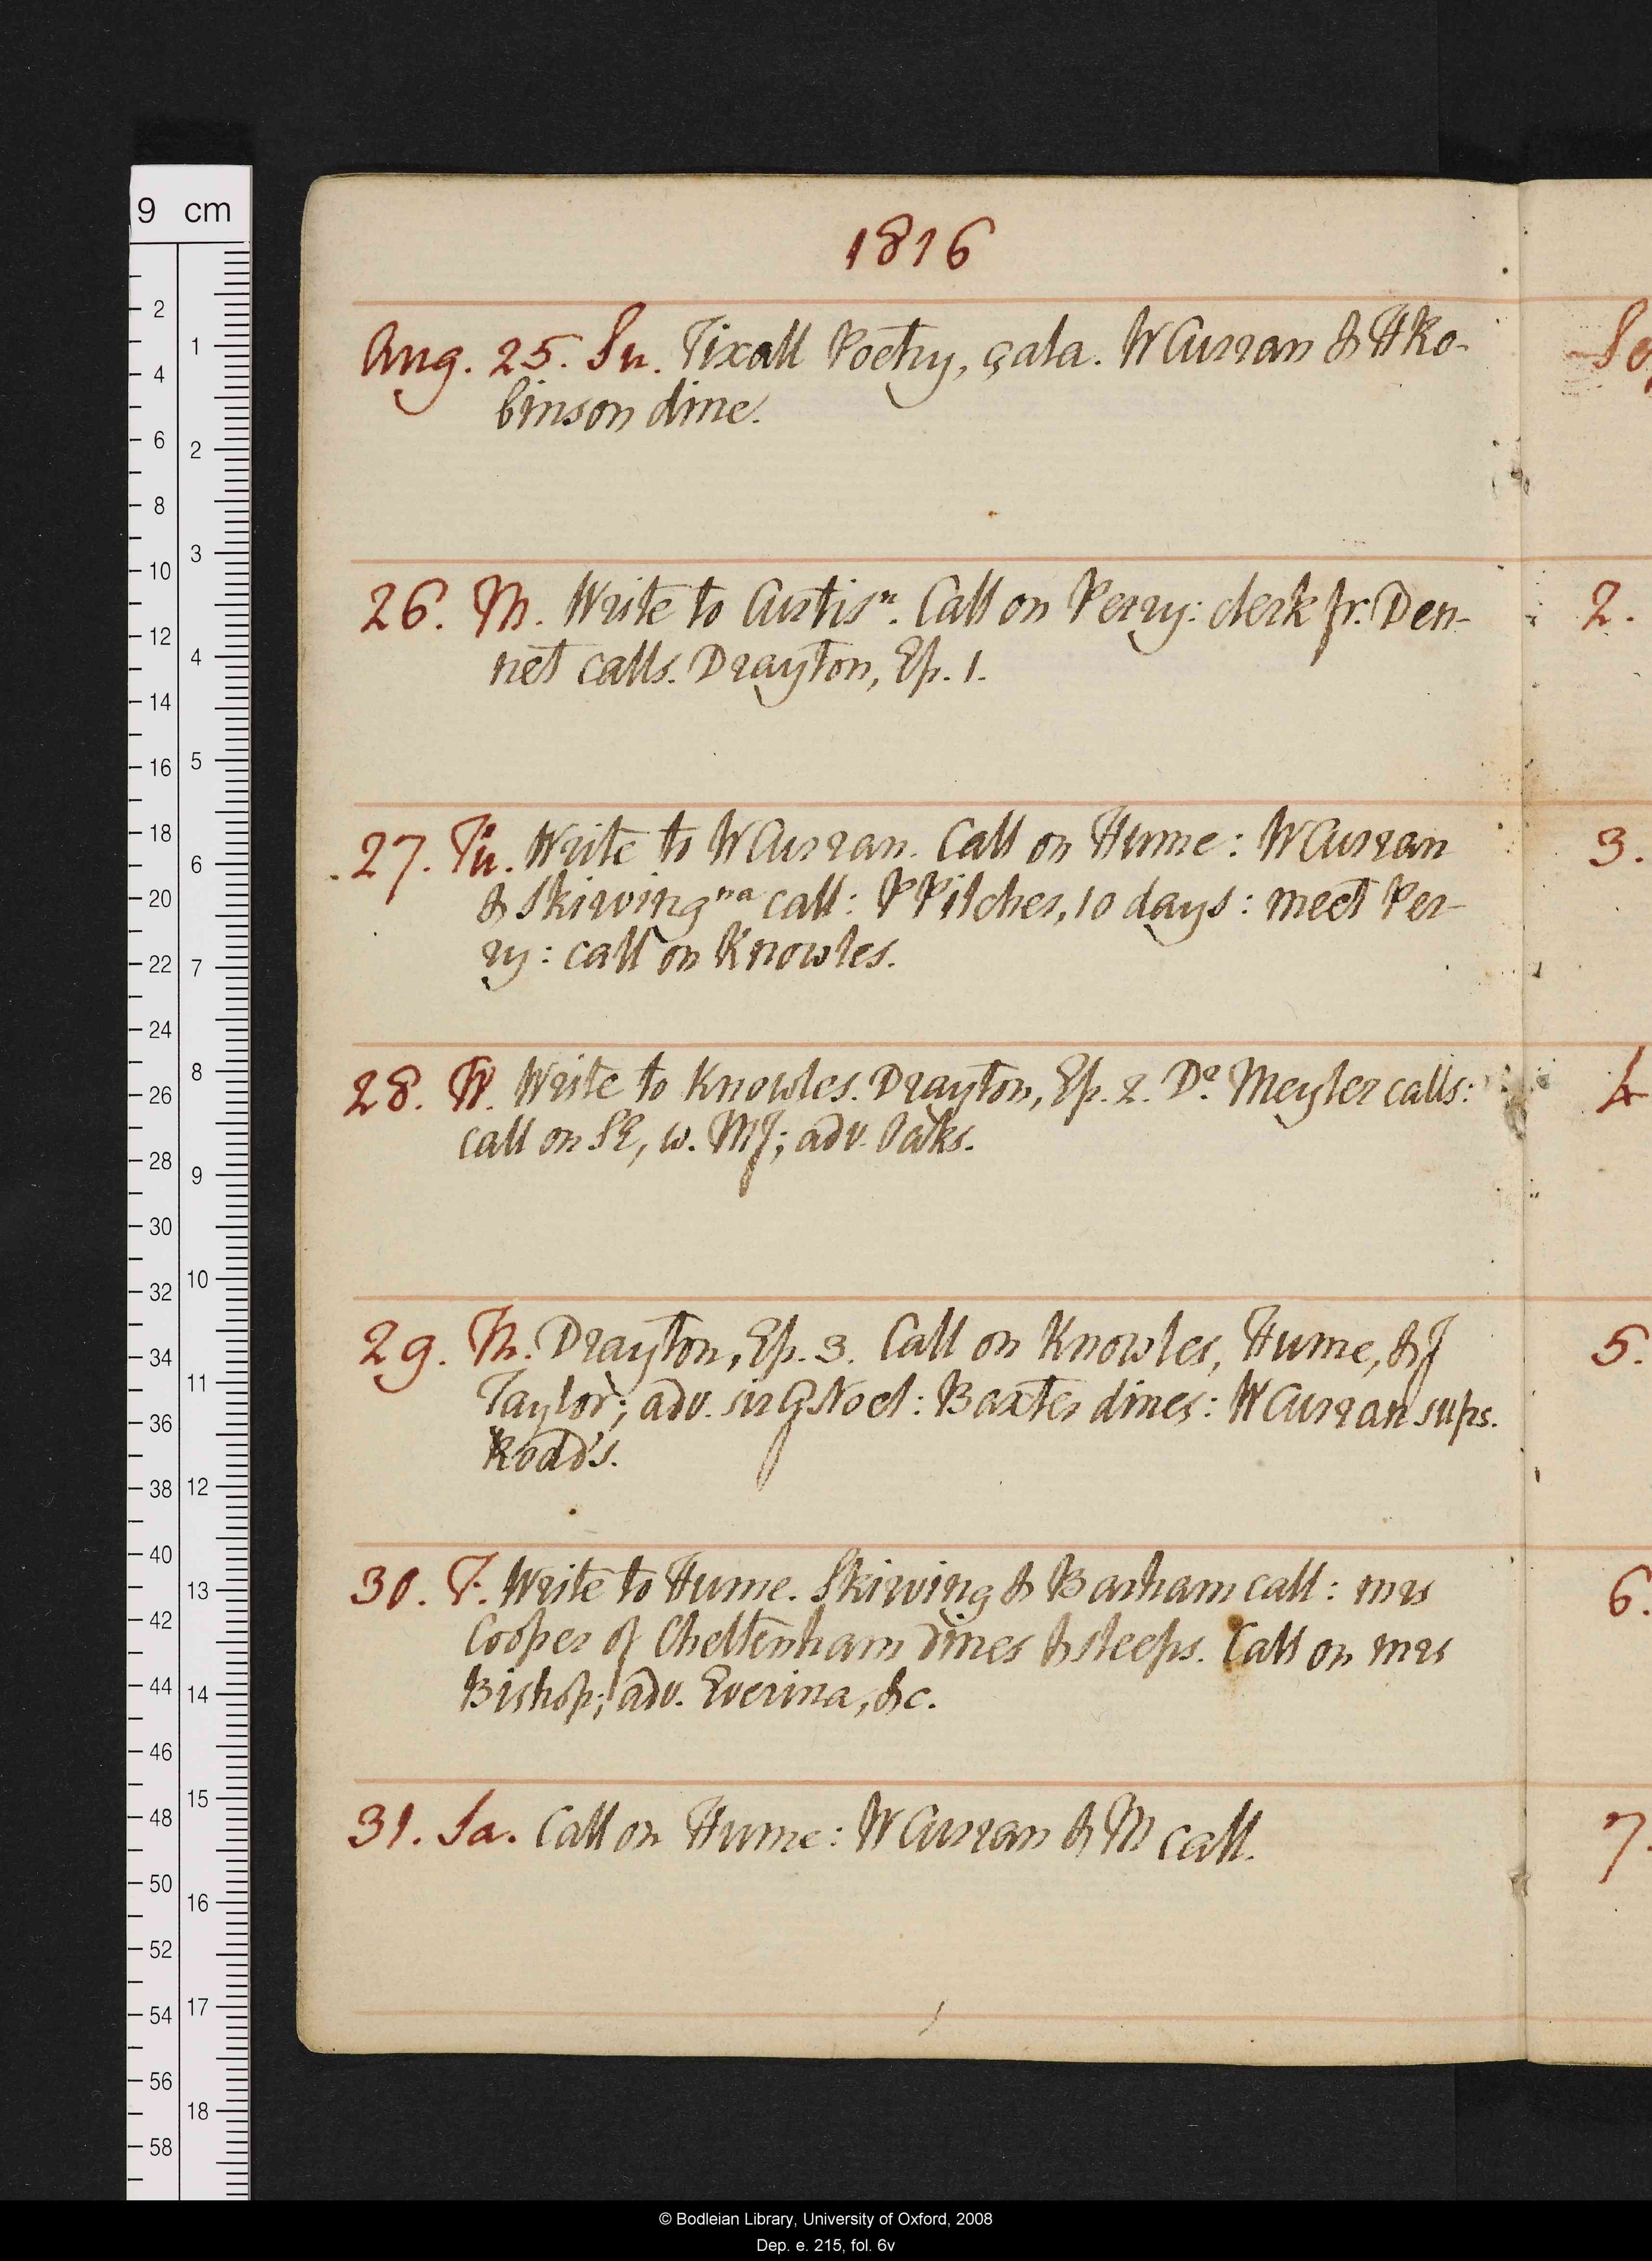 1816
Aug. 25. Su. Tixall Poetry, çala. W Curran & H Ro-
binson dine.
26. M. Write to Curtisⁿ. Call on Perry: clerk fr. Den-
net calls. Drayton, Ep. 1.
27. Tu. Write to W Curran. Call on Hume: W Curran
& Skirving ⁿᵃ call: P Pilcher, 10 days: meet Per-
ry: call on Knowles.
28. W. Write to Knowles. Drayton, Ep. 2. Dr Meyler calls:
call on SE, w. MJ; adv. Oaks.
29. Th. Drayton, Ep. 3. Call on Knowles, Hume, & J
Taylor; adv. sir G Noel: Baxter dines: W Curran sups.
Roads.
30. F. Write to Hume. Skirving & Barham call: mrs
Cooper of Cheltenham dines & sleeps. Call on mrs
Bishop; adv. Everina, &c.
31. Sa. Call on Hume: W Curran & M call.
2.
3.
4
5.
6.
7.
9 cm
2
4
6
8
10
12
14
16
18
20
22
24
26
28
30
32
34
36
38
40
42
44
46
48
50
52
54
56
58
1
2
3
4
5
6
7
8
9
10
11
12
13
14
15
16
17
18
© Bodleian Library, University of Oxford, 2008
Dep. e. 215, fol. 6v